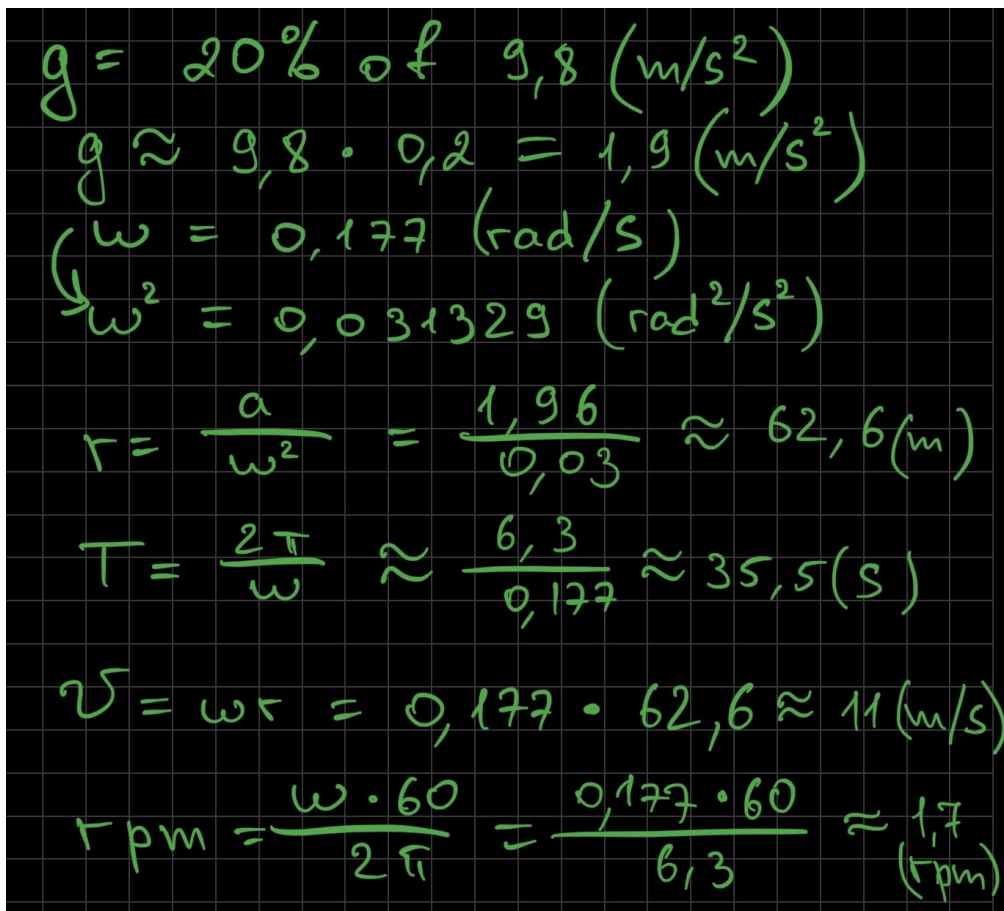 g = 20% of 9,8 (m/s²)
g ≈ 9,8 · 0,2 = 1,9 (m/s²)
w = 0,177 (rad/s)
w² = 0,031329 (rad²/s²)
r = a/w² = 1,96/0,03 ≈ 62,6 (m)
T = 2π/w ≈ 6,3/0,177 ≈ 35,5 (s)
v = wr = 0,177 · 62,6 ≈ 11 (m/s)
rpm = w · 60/2π = 0,177 · 60/6,3 ≈ 1,7 (rpm)